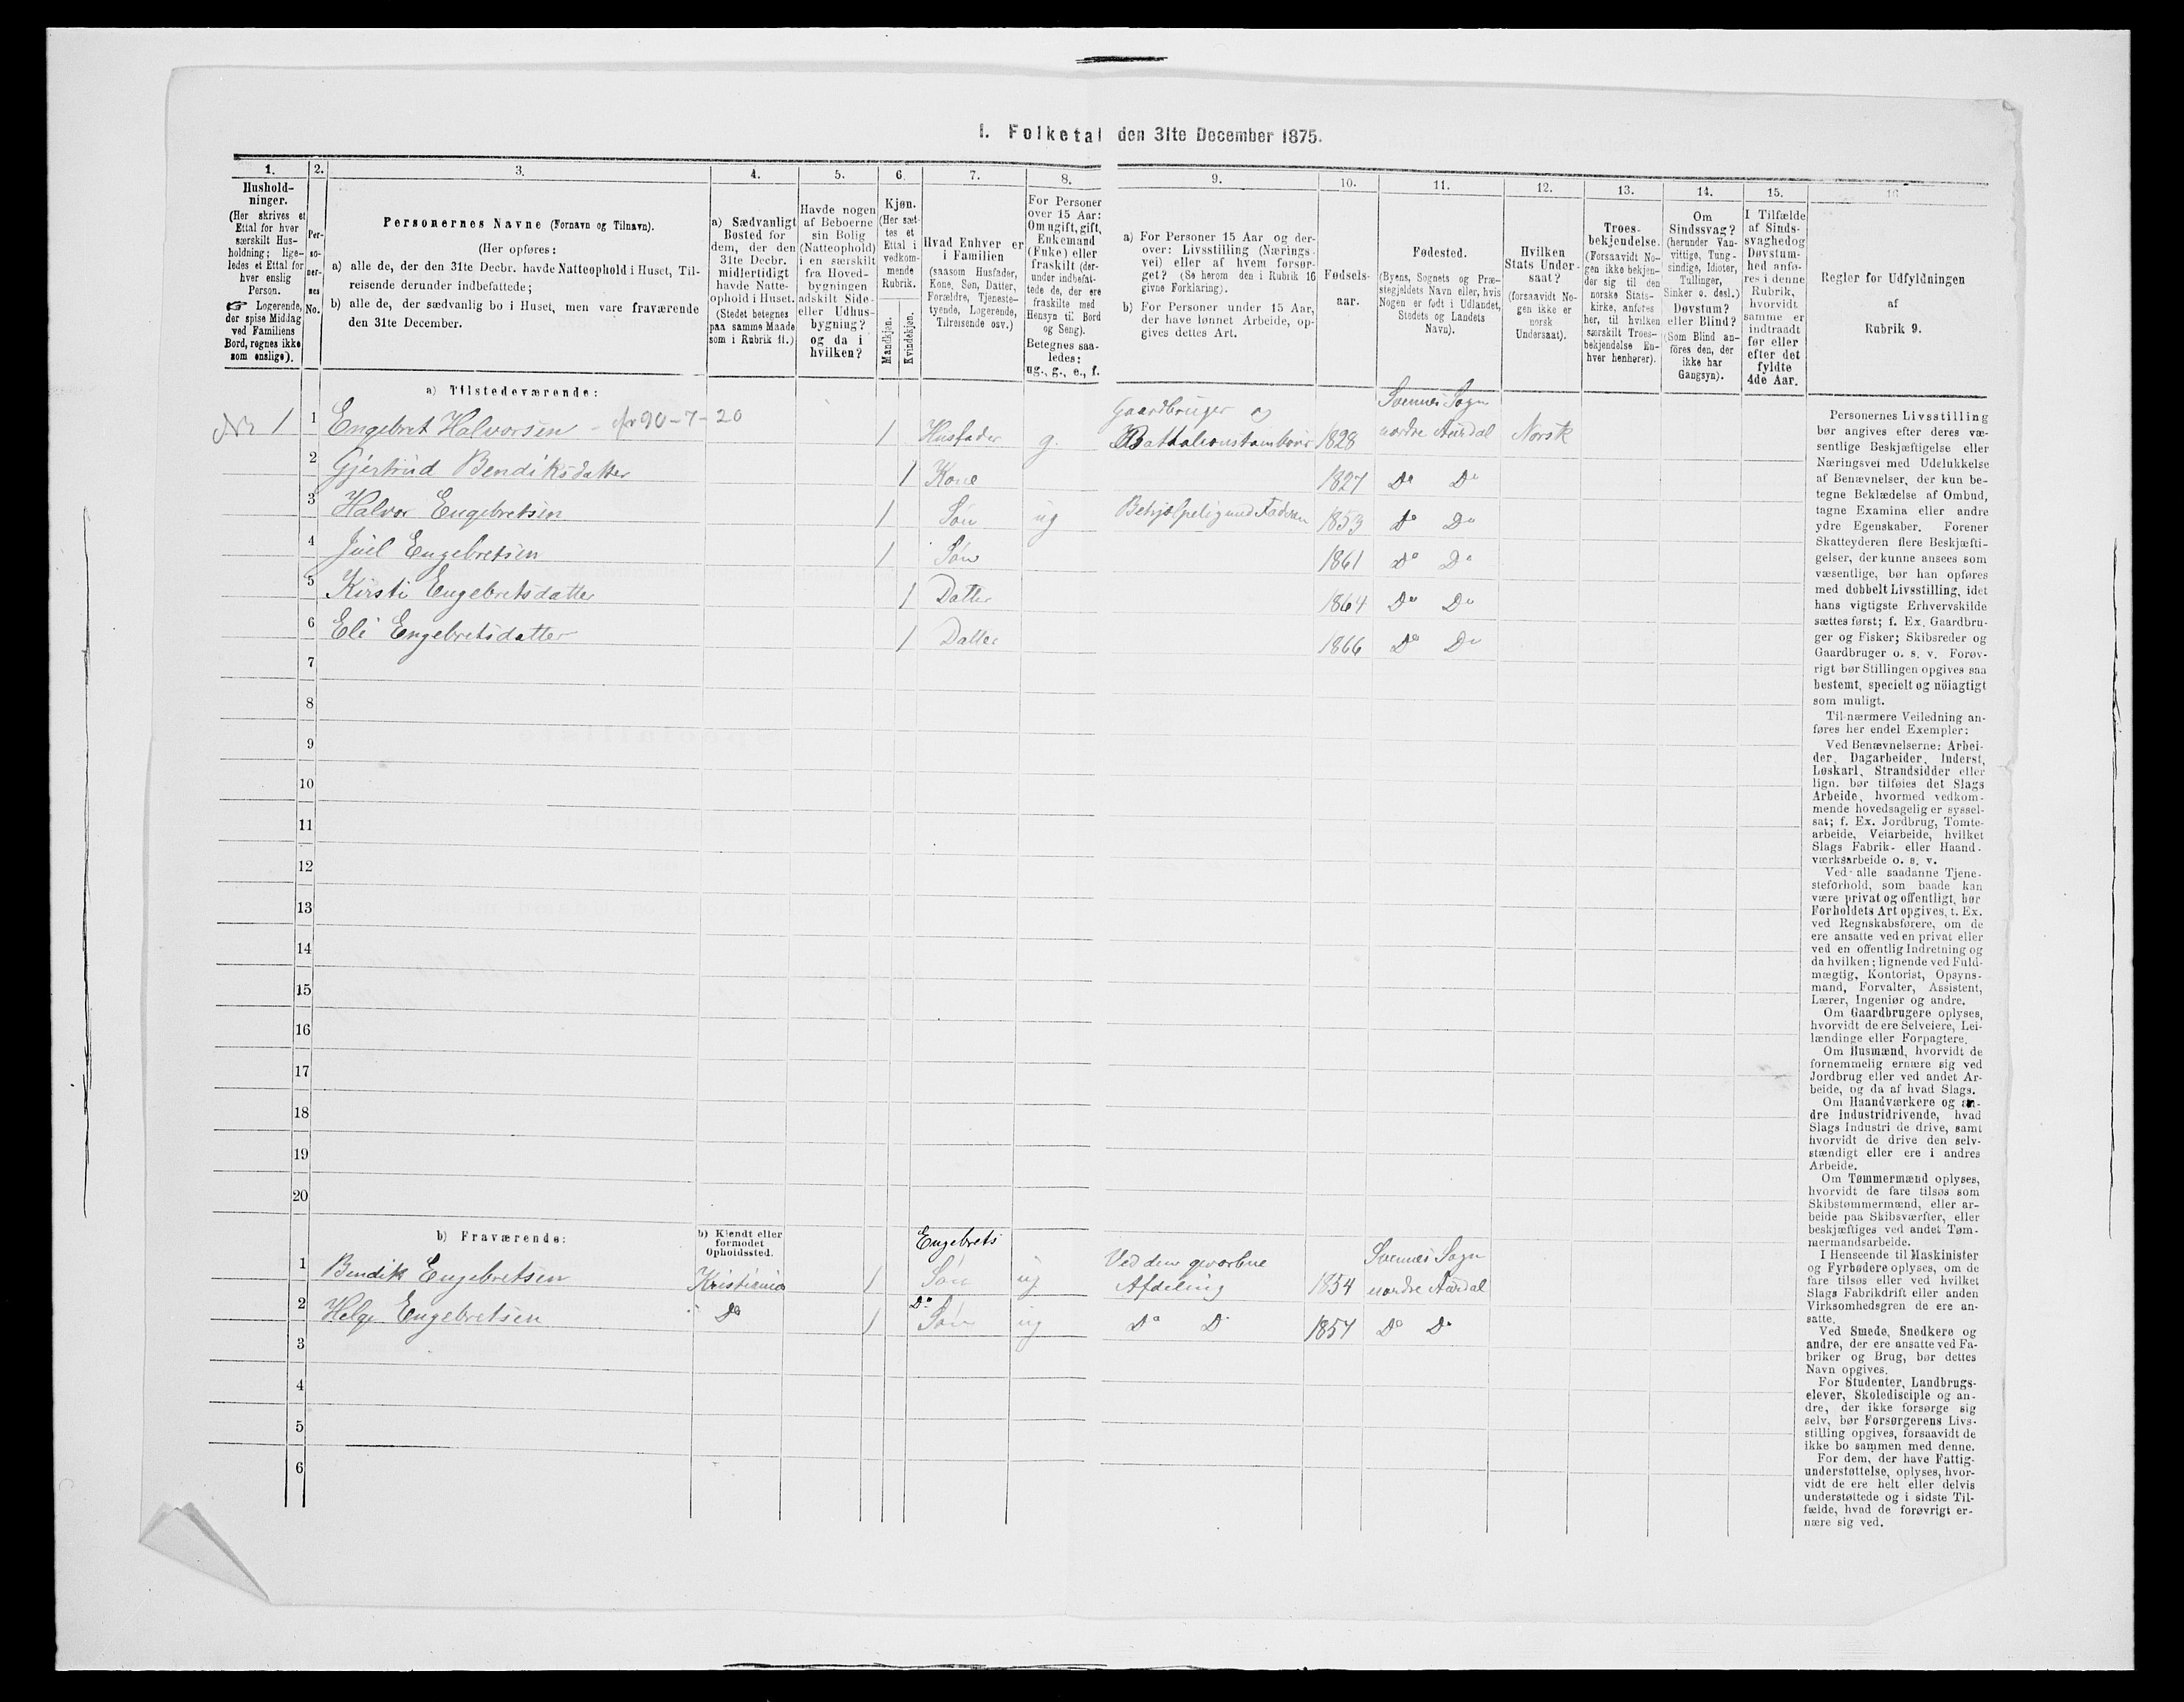 I. Folketal den 31te December 1875.
1. 2. 3. 4. 5. 6. 7. 8. 9. 10. 11. 12. 13. 14. 15. 16
Hushold-
ninger.
(Her skrives et
Ettal for hver
særskilt Hus-
holdning; lige-
ledes et Ettal for
hver enslig
Person.
☞ Logerende,
der spise Middag
ved Familiens
Bord, regnes ikke
som enslige).
Per-
so-
ner-
nes
No.
Personernes Navne (Fornavn og Tilnavn).
(Her opføres:
a) alle de, der den 31te Decbr. havde Natteophold i Huset, Til-
reisende derunder indbefattede;
b) alle de, der sædvanlig bo i Huset, men vare fraværende
den 31te December.
a) Sædvanligt
Bosted for
dem, der den
31te Decbr.
midlertidigt
havde Natte-
ophold i Huset.
(Stedet betegnes
paa samme Maade
som i Rubrik 11.)
Havde nogen
af Beboerne
sin Bolig
(Natteophold)
i en særskilt
fra Hoved-
bygningen
adskilt Side-
eller Udhus-
bygning?
og da i
hvilken?
Kjøn.
(Her sæt-
tes et
Ettal i
vedkom-
mende
Rubrik.
Mandkjøn.
Kvindekjøn.
Hvad Enhver er
i Familien
(saasom Husfader,
Kone, Søn, Datter,
Forældre, Tjeneste-
tyende, Logerende,
Tilreisende osv.)
For Personer
over 15 Aar:
Om ugift, gift,
Enkemand
(Enke) eller
fraskilt (der-
under indbefat-
tede de, der ere
fraskilte med
Hensyn til Bord
og Seng).
Betegnes saa-
ledes:
ug., g., e., f.
a) For Personer 15 Aar og der-
over: Livsstilling (Nærings-
vei) eller af hvem forsør-
get? (Se herom den i Rubrik 16
givne Forklaring).
b) For Personer under 15 Aar,
der have lønnet Arbeide, op-
gives dettes Art.
Fødsels-
aar.
Fødested.
(Byens, Sognets og Præ-
stegjeldets Navn eller, hvis
Nogen er født i Udlandet,
Stedets og Landets
Navn).
Hvilken
Stats Under-
saat?
(forsaavidt No-
gen ikke er
norsk
Undersaat).
Troes-
bekjendelse.
(Forsaavidt No-
gen ikke bekjen-
der sig til den
norske Stats-
kirke, anføres
her, til hvilken
særskilt Troes-
bekjendelse En-
hver henhører).
Om
Sindssvag?
(herunder Van-
vittige, Tung-
sindige, Idioter,
Tullinger,
Sinker o. desl.)
Døvstum?
eller Blind?
(Som Blind an-
føres den, der
ikke har
Gangsyn).
I Tilfælde
af Sinds-
svaghed og
Døvstum-
hed anfø-
res i denne
Rubrik,
hvorvidt
samme er
indtraadt
før eller
efter det
fyldte
4de Aar.
Regler for Udfyldningen
af
Rubrik 9.
a) Tilstedeværende:
Gaardbruger og Svennes Sogn
1 1 Engebret Halvorsen 90-7-20 1 Husfader g. Battalionstambour 1828 nordre Aurdal Norsk
2 Gjertrud Bendiksdatter 1 Kone 1827 Do Do
3 Halvor Engebretsen 1 Søn ug 1853 Do Do
4 Juel Engebretsen 1 Søn 1861 Do Do
5 Kirsti Engebretsdatter 1 Datter 1864 Do Do
6 Eli Engebretsdatter 1 Datter 1866 Do Do
7
8
9
10
11
12
13
14
15
16
17
18
19
20
b) Fraværende:
b) Kjendt eller
formodet
Opholdssted.
Engebrets Ved den gevorbne Svennes Sogn
1 Bendik Engebretsen Kristiania 1 Søn ug Afdeling 1854 nordre Aurdal
Do
2 Helge Engebretsen Do 1 Søn ug Do D 1857 Do Do
3
4
5
6
Personernes Livsstilling
bør angives efter deres væ-
sentlige Beskjæftigelse eller
Næringsvei med Udelukkelse
af Benævnelser, der kun be-
tegne Beklædelse af Ombud,
tagne Examina eller andre
ydre Egenskaber. Forener
Skatteyderen flere Beskjæfti-
gelser, der kunne ansees som
væsentlige, bør han opføres
med dobbelt Livsstilling, idet
hans vigtigste Erhvervskilde
sættes først; f. Ex. Gaardbru-
ger og Fisker; Skibsreder og
Gaardbruger o. s. v. Forøv-
rigt bør Stillingen opgives saa
bestemt, specielt og nöiagtigt
som muligt.
Til nærmere Veiledning an-
føres her endel Exempler:
Ved Benævnelserne: Arbei-
der, Dagarbeider, Inderst,
Løskarl, Strandsidder eller
lign. bør tilføies det Slags
Arbeide, hvormed vedkom-
mende hovedsagelig er syssel-
sat; f. Ex. Jordbrug, Tomte-
arbeide, Veiarbeide, hvilket
Slags Fabrik- eller Haand-
værksarbeide o. s. v.
Ved alle saadanne Tjene-
steforhold, som baade kan
være privat og offentligt, bør
Forholdets Art opgives, t. Ex.
ved Regnskabsførere, om de
ere ansatte ved en privat eller
ved en offentlig Indretning og
da hvilken; lignende ved Fuld-
mægtig, Kontorist, Opsyns-
mand, Forvalter, Assistent,
Lærer, Ingeniør og andre.
Om Gaardbrugere oplyses,
hvorvidt de ere Selveiere, Lei-
lændinge eller Forpagtere.
Om Husmænd, hvorvidt de
fornemmelig ernære sig ved
Jordbrug eller ved andet Ar-
beide, og da af hvad Slags.
Om Haandværkere og an-
dre Industridrivende, hvad
Slags Industri de drive, samt
hvorvidt de drive den selv-
stændigt eller ere i andres
Arbeide.
Om Tømmermænd oplyses,
hvorvidt de fare tilsøs som
Skibstømmermænd, eller ar-
beide paa Skibsværfter, eller
beskjæftiges ved andet Tøm-
mermandsarbeide.
I Henseende til Maskinister
og Fyrbødere oplyses, om de
fare tilsøs eller ved hvilket
Slags Fabrikdrift eller anden
Virksomhedsgren de ere an-
satte.
Ved Smede, Snedkere og
andre, der ere ansatte ved Fa-
briker og Brug, bør dettes
Navn opgives.
For Studenter, Landbrugs-
elever, Skoledisciple og an-
dre, der ikke forsørge sig
selv, bør Forsørgerens Livs-
stilling opgives, forsaavidt de
ikke bo sammen med denne.
For dem, der have Fattig-
understøttelse, oplyses, hvor-
vidt de ere helt eller delvis
understøttede og i sidste Til-
fælde, hvad de forøvrigt er-
nære sig ved.